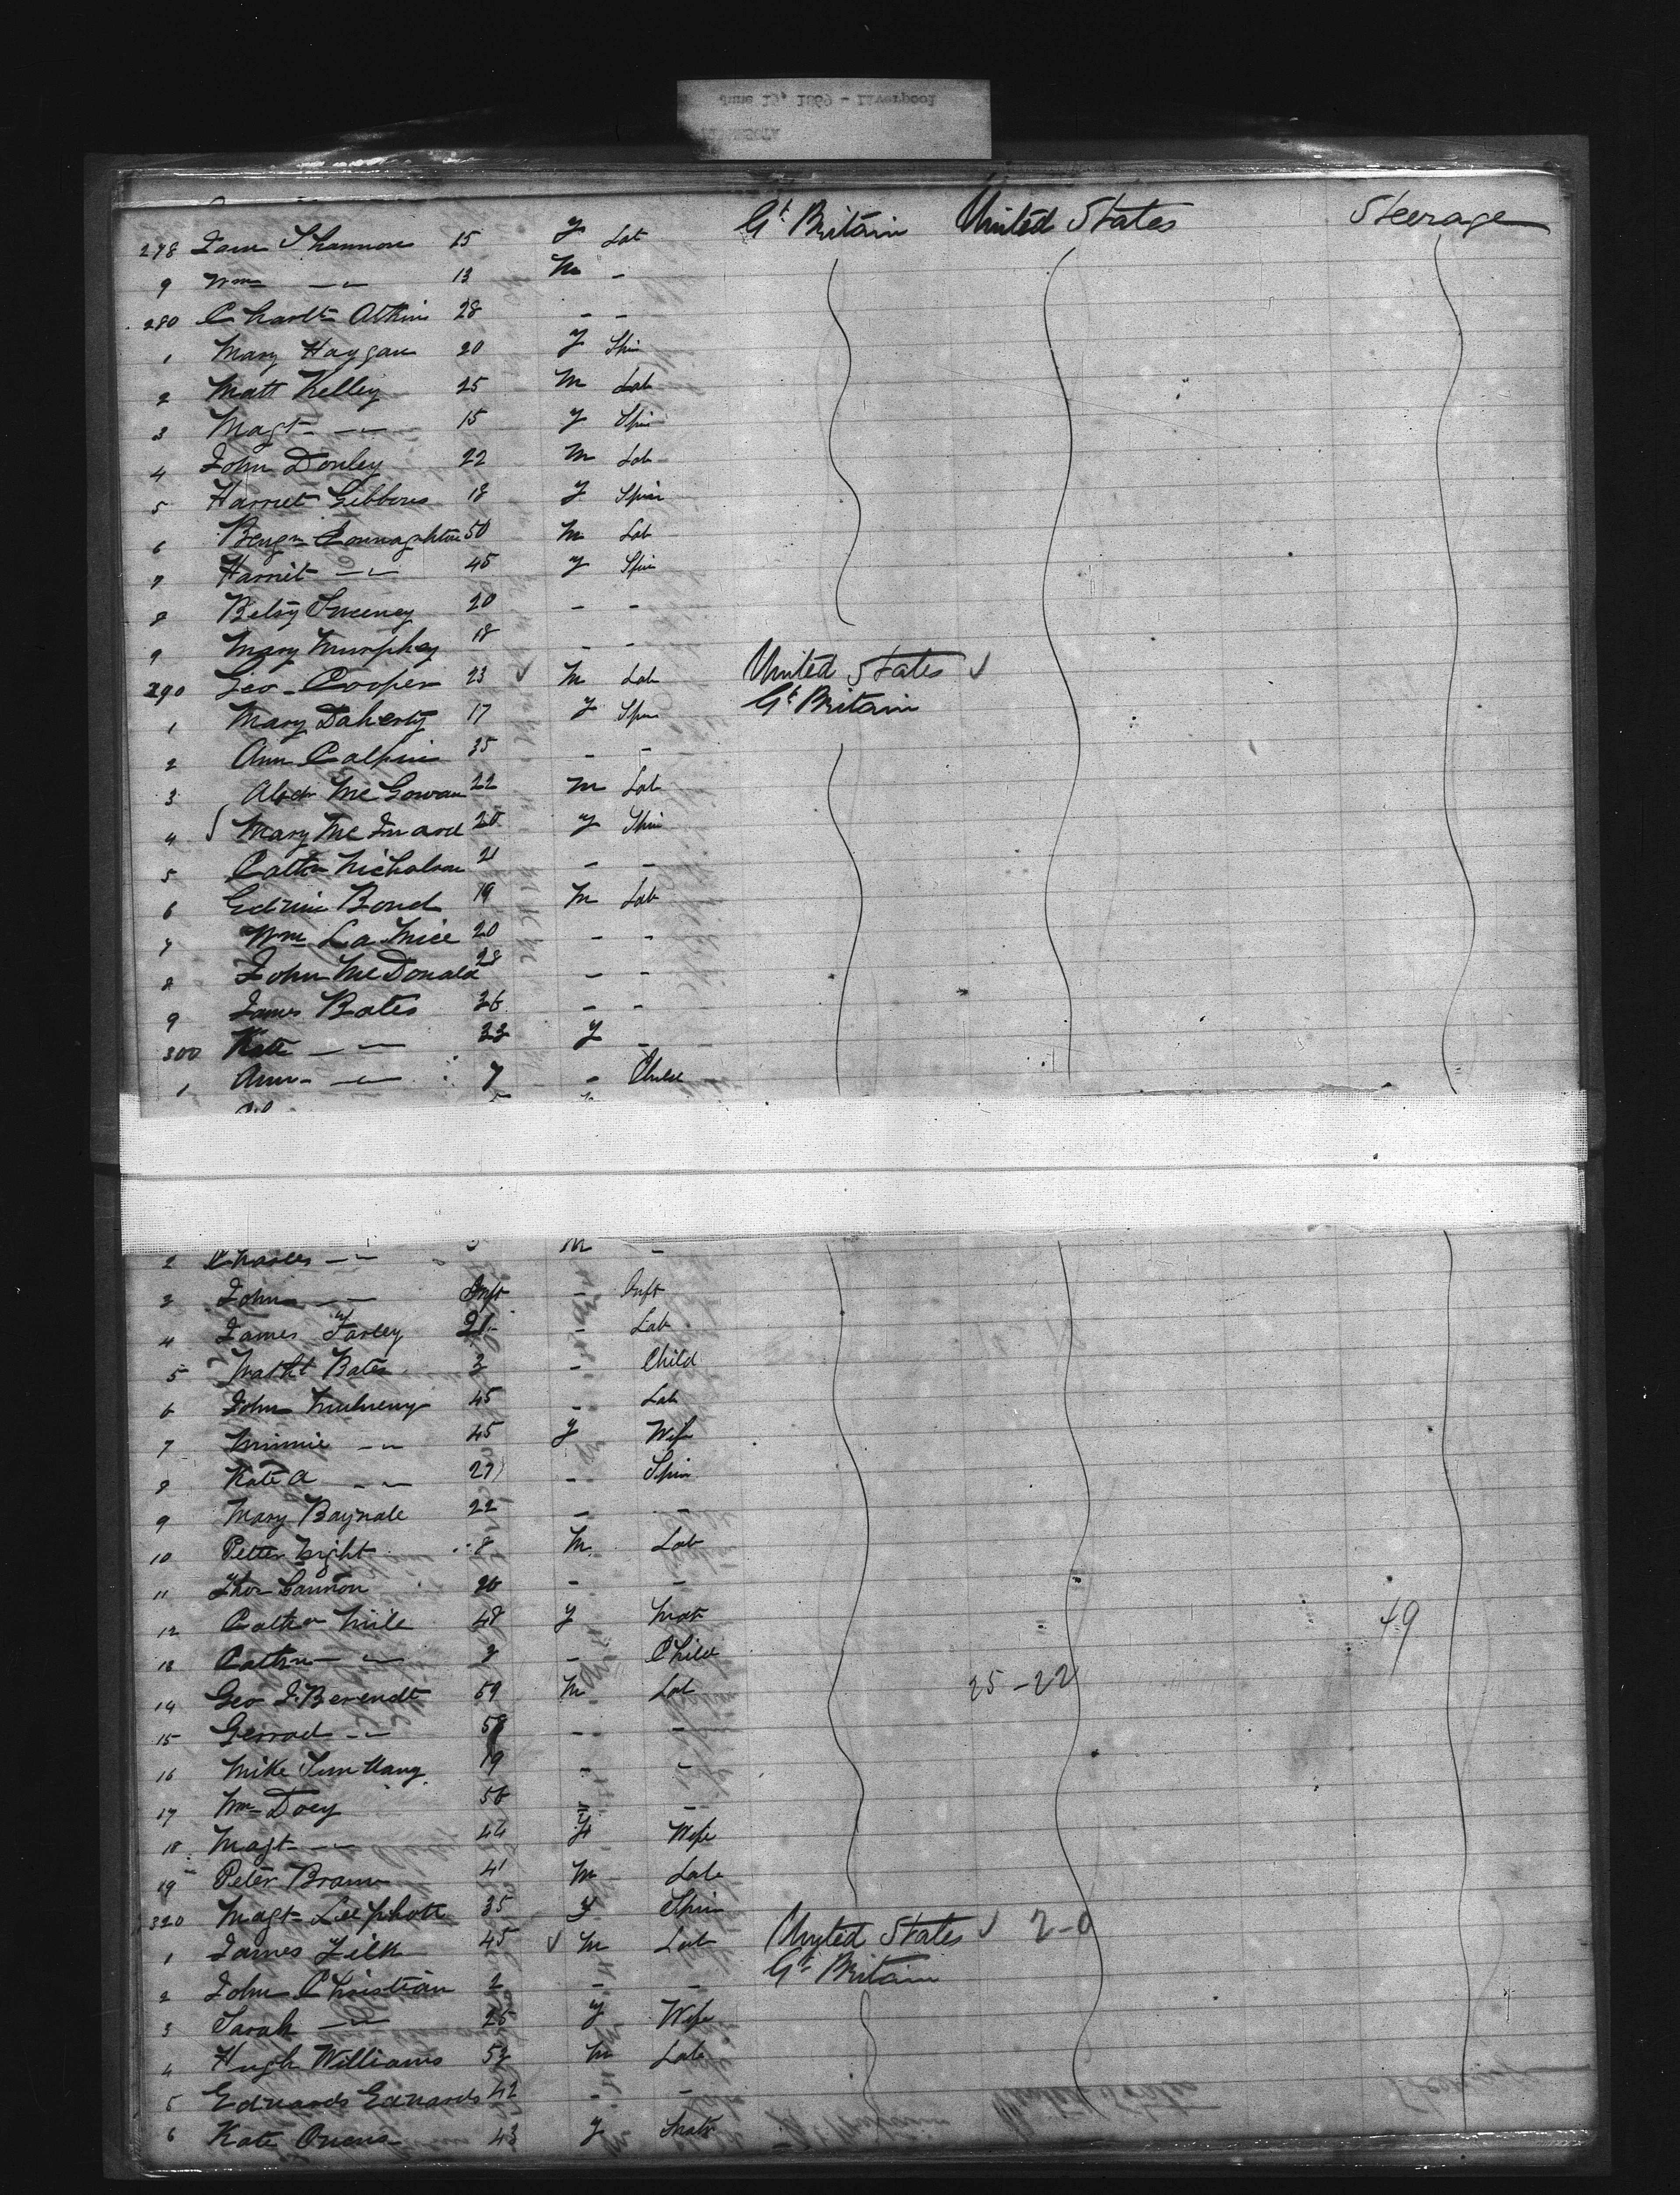 June 19, 1869 - Liverpool
278 Jane Shannon 15 F Lab Gt Britain United States Steerage
9 Wm -"- 13 M -
280 Charlte Atkins 28 - -
1 Mary Haygan 20 F Spin
2 Matt Kelley 25 M Lab
3 Magt -"- 15 F Spin
4 John Donley 22 M Lab
5 Harriet Gibbons 18 F Spin
6 Benjn Connaghton 50 M Lab
7 Harriet -"- 45 F Spin
8 Betsy Sweeney 20 - -
9 Mary Murphey 18 - -
290 Geo Cooper 23 ✓ M Lab United States ✓
1 Mary Daherty 17 F Spin Gt Britain
2 Ann Calpin 35 - -
3 Alexdr McGowan 22 M Lab
4 Mary Mc 20 F Spin
5 Cathn Nicholson 21 - -
6 Edwin Bond 19 M Lab
7 Wm 20 - -
8 John McDonald 28 - -
9 James Bates 36 - -
300 Kate -"- 33 F -
1 Ann -"- 7 - Child
2 Charles -"- M -
3 John -"- Inft - Inft
4 James Farley 21 - Lab
5 Matht Bates 3 - Child
6 John Mulveny 45 - Lab
7 Minnie -"- 45 F Wife
8 Kate A -"- 27 - Spin
9 Mary 22 - -
10 Petter 8 M Lab
11 Thos Cannon 26 - -
12 Cathn Mile 48 F Matr 49
13 Cathn -"- 8 - Child
14 Geo J. Berendt 59 M Lab 25-22
15 Gerrad -"- 58 - -
16 Mike 19 - -
17 Wm Doey 56 - -
18 Magt -"- 44 F Wife
19 Peter Braun 41 M Lab
320 Magt 35 F Spin
1 James Zilk 45 ✓ M Lab United States ✓ 2-0
2 John Christian 2 - - Gt Britain
3 Sarah -"- 25 F Wife
4 Hugh Williams 52 M Lab
5 Edwards Edwards 42 - -
6 Kate Owens 43 F Matr